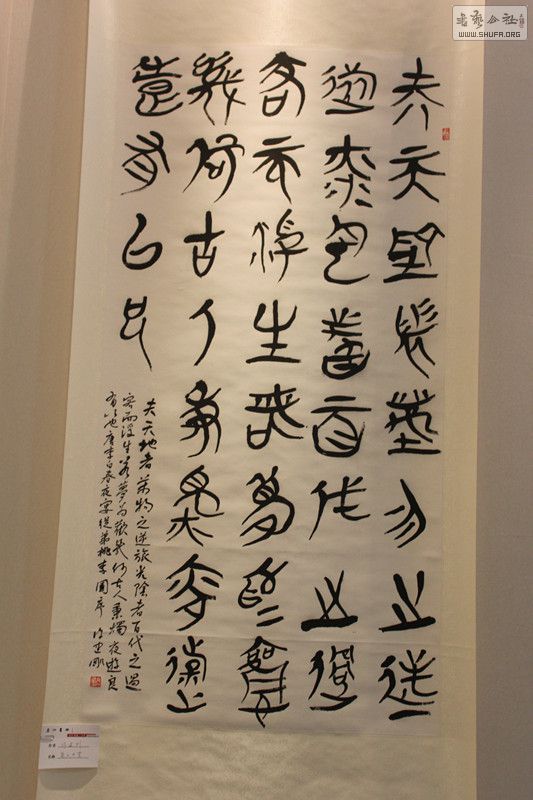 夫天地者萬物之逆
旅光陰者百代之過
客而浮生若夢為歡
幾何古人秉燭夜遊
良有以也
夫天地者萬物之逆旅光陰者百代之過
客而浮生若夢為歡幾何古人秉燭夜遊良
有以也唐李白春夜宴從弟桃李園序
書藝公社
WWW.SHUFA.ORG